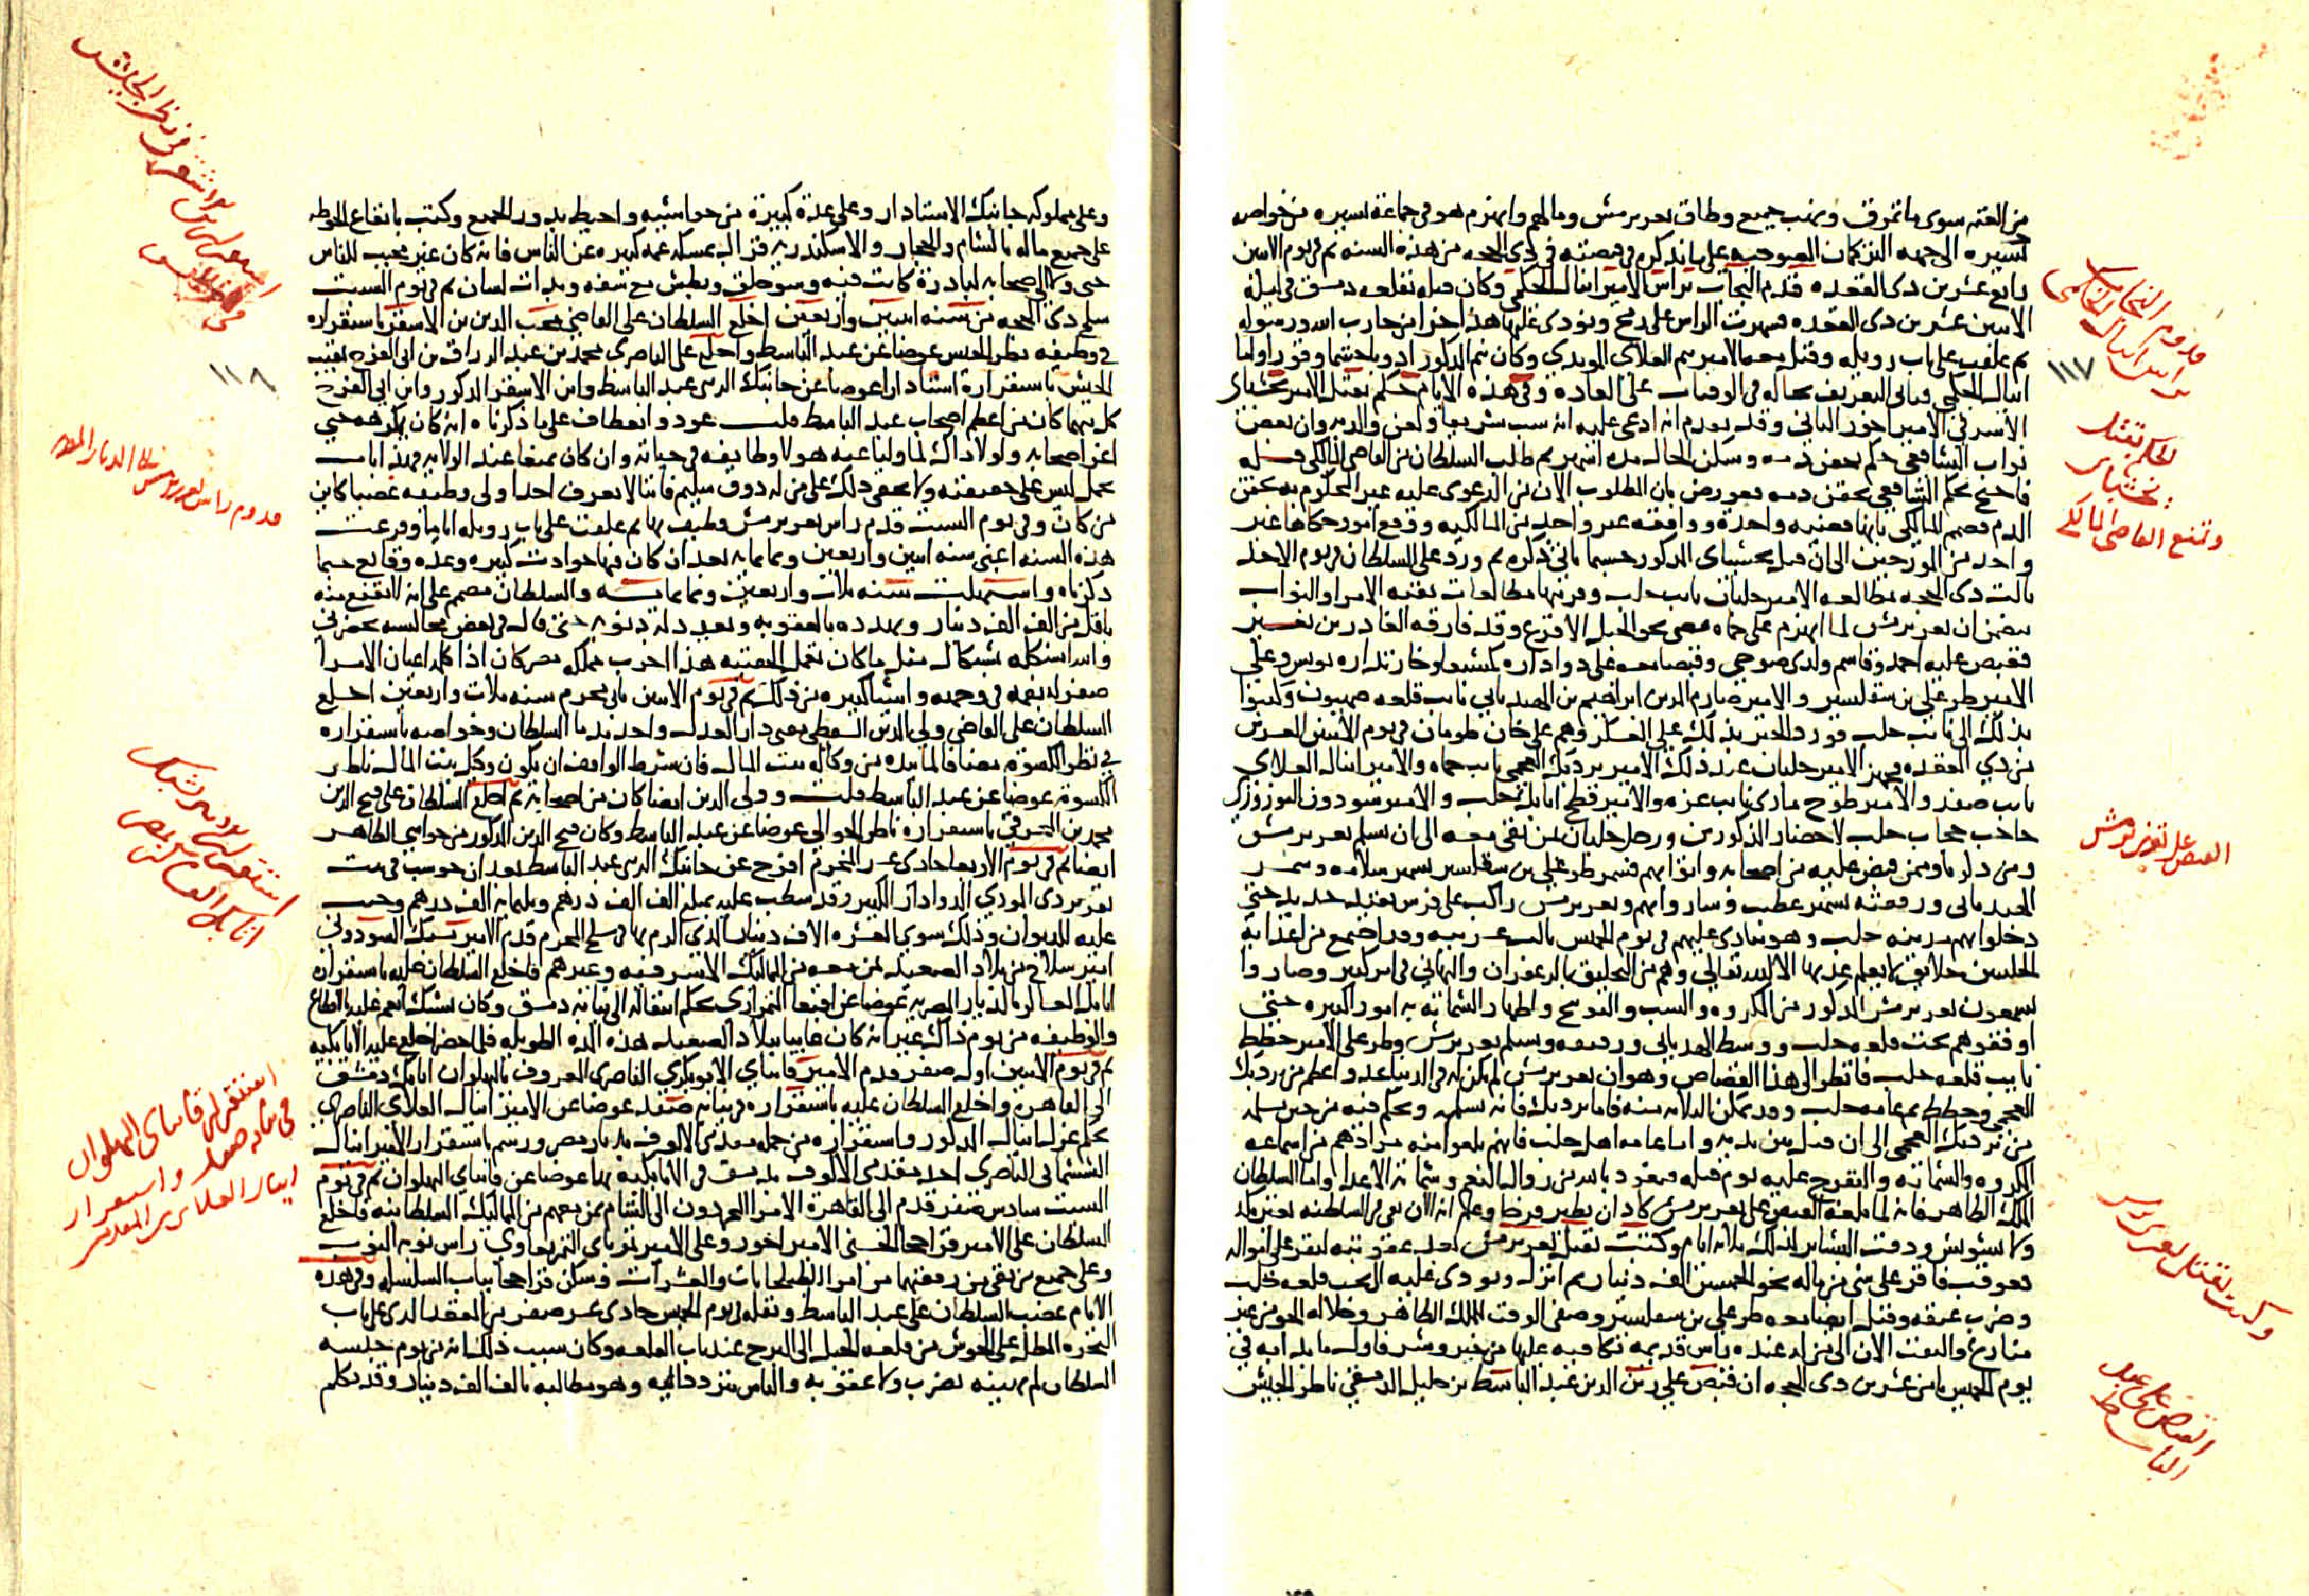 من الفتنه سوى ما تمزق ونهب جميع وطاق تغري برمش وما لهم وانهزم هو في جماعة يسيره من خواصه
يسيره الى جهه التركمان الصوجيه على ما نذكره في قصته في ذي الحجه من هذه السنه ثم في يوم الاثنين
رابع عشرين ذي القعده قدم النجاب براس الامير اينال الجكمي وكان قبله بقلعه دمشق في ليلة
الاثنين عشرين ذي القعده فشهرت الراس على رمح ونودي عليها هذا جزا من حارب الله ورسوله
ثم علقت على باب زويله وقتل معه الامير
اينال الجكمي وياتي التعريف بحاله في الوفيات على العاده وفي هذه الايام حكم بقتل الامير يخشباي
الاشرفي الامير اخور الثاني وقد تقدم انه ادعى عليه انه سب شريفا ولعن والديه وان بعض
نواب الشافعي حكم بحقن دمه وسكن الحال مده اشهر ثم طلب السلطان من القاضي المالكي قتله
فاحتج بحكم الشافعي بحقن دمه فعورض بان المطلوب الان من الدعوى عليه غير المحكوم به بحقن
الدم فصمم المالكي بانها قضيه واحدة ووافقه غير واحد من المالكيه ووقع امور حكاها غير
واحد من المورخين الى ان قتل يخشباي المذكور حسبما ياتي ذكره ثم ورد على السلطان في يوم الاحد
ثالث ذي الحجه مطالعه الامير جلبان نايب حلب وقرينها مطالعات بقيه الامرا والنواب
يتضمن ان تغري برمش لما انهزم على حماه مضى نحو الجبل الاقرع وقد فارقه الغادر بن نعير
فقبض عليه احمد وقاسم ولدي صوجي وقبضا معه على دواداره كمشبغا وخازنداره يونس وعلى
الامير طرعلي بن سقلسيز والامير صارم الدين ابراهيم بن الهذباني نايب قلعه صهيون وكتبوا
بذلك الى نايب حلب فورد الخبر بذلك على العسكر وهم على خان طومان في يوم الاثنين العشرين
من ذي القعده فجهز الامير جلبان عند ذلك الامير بردبك العجمي نايب حماه والامير اينال العلاي
نايب صفد والامير طوخ مازي نايب غزه والامير قطج اتابك حلب والامير سودون النوروزي
حاجب حجاب حلب لاحضار المذكورين ورحل جلبان بمن بقي معه الى ان تسلم تغري برمش
ومن ذكرناه ممن قبض عليه من اصحابه واتوا بهم فسمر طرعلي بن سقلسيز تسمير سلامه وسمر
الهذباني ورفقته تسمير عطب وساروا بهم وتغري برمش راكب على فرس بقيد حديد حتى
دخلوا بهم مدينه حلب وهو ينادى عليهم في يوم الخميس ثالث عشرينه وقد اجتمع من اعدايه
الحلبيين خلايق لا يعلم عدتها الا الله تعالى وهم من التخليق بالزعفران والتهاني في امر كبير وصاروا
يسمعون تغري برمش المذكور من المكروه والسب والتوبيخ واظهار الشماته به امورا كبيره حتى
اوقفوهم تحت قلعه حلب ووسط الهذباني ورفقته وتسلم تغري برمش وطرعلي الامير حطط
نايب قلعه حلب فانظر الى هذا القصاص وهو ان تغري برمش لم يكن له في الدنيا عدو اعظم من بردبك
العجمي وحطط ثم عامه حلب وقد تمكن الثلاثه منه فاما بردبك فانه تسلمه وتحكم فيه من حين تسلمه
من بردبك العجمي الى ان قتل بين يديه واما عامه اهل حلب فانهم بلغوا منه مرادهم من اسماعه
المكروه والشماته والتفرج عليه يوم قتله فنعوذ بالله من زوال النعم وشماته الاعدا واما السلطان
الملك الظاهر فانه لما بلغه القبض على تغري برمش كاد ان يطير فرحا وعلم انه الان بقي في السلطنه بغير نكد
ولا تشويش ودقت البشاير لذلك ثلاثه ايام وكتبت بقتل تغري برمش بعد عقوبته ليقر على امواله
فعوقب فاقر على شي من ماله نحو الخمسين الف دينار ثم انزل ونودي عليه الى تحت قلعه حلب
وضرب عنقه وقتل ايضا معه طرعلي بن سقلسيز وصفى الوقت للملك الظاهر وخلا له الجو من غير
منازع والتفت الان الى من له عنده راس قديمه يكافيه عليها من خير وشر فاول ما بدا به في
يوم الخميس ثامن عشرين ذي الحجه ان قبض على زين الدين عبد الباسط بن خليل الدمشقي ناظر الجيش
قدوم النجاب براس اينال الجكمي
١١٧
الحكم بقتل يخشباي
وتمنع القاضي المالكي
القبض على تغري برمش
وكتب بقتل تغري برمش
القبض على عبد الباسط
وعلى مملوكه جانبك الاستادار وعلى عدة كبيرة من حواشيه واحيط بدور الجميع وكتب بايقاع الحوطه
على جميع ماله بالشام والحجاز والاسكندريه فزال بمسكه غمه كبيره عن الناس فانه كان غير محبب للناس
حتى ولا الى اصحابه لبادرة كانت فيه وسو خلق وبطش مع سفه وبذات لسان ثم في يوم السبت
سلخ ذي الحجه من سنه اثنين واربعين اخلع السلطان على القاضي محب الدين بن الاشقر باستقراره
في وظيفه نظر الجيش عوضا عن عبد الباسط واخلع على الناصري محمد بن عبد الرزاق بن ابي الفرج نقيب
الجيش باستقراره استادارا عوضا عن جانبك الزيني عبد الباسط وابن الاشقر المذكور وابن ابي الفرج
كل منهما كان من اعظم اصحاب عبد الباسط قلت عود وانعطاف على ما ذكرناه انه كان يكرهه حتى
اعز اصحابه ولولا ذاك لما وليا عنه هولا وظايفه في حياته وان كان تمنعا عند الولايه فهذا باب
تحمل ليس على حقيقته ولا يخفى ذلك على من له ذوق سليم فاننا لا نعرف احدا ولي وظيفه غصبا كاين
من كان وفي يوم السبت قدم راس تغري برمش وطيف بها ثم علقت على باب زويله اياما وفرغت
هذه السنه اعني سنه اثنين واربعين وثمانمايه بعد ان كان فيها حوادث كبيره وعده وقايع حسبما
ذكرناه واستهلت سنه ثلاث واربعين وثمانمايه والسلطان مصمم على انه لا يقنع منه
باقل من الف الف دينار ويهدده بالعقوبه ويعدد له ذنوبه حتى قال في بعض مجالسه بحضرتي
والله اشنكله بشنكال مثل ما كان تعمل الجقتيه هذا اخرب مملكه مصر كان اذا كلمه اعيان الامرا
صغر له بفمه في وجهه واشيا كبيره من ذلك ثم في يوم الاثنين ثاني محرم سنه ثلاث واربعين اخلع
السلطان على القاضي ولي الدين السفطي مفتي دار العدل واحد ندما السلطان وخواصه باستقراره
في نظر الكسوة مضافا لما بيده من وكاله بيت المال فان شرط الواقف ان يكون وكيل بيت المال ناظر
الكسوة عوضا عن عبد الباسط قلت وولي الدين ايضا كان من اصحابه ثم اخلع السلطان على فتح الدين
محمد بن المحرقي باستقراره ناظر الجوالي عوضا عن عبد الباسط وكان فتح الدين المذكور من حواشي الظاهر
ايضا ثم في يوم الاربعا حادي عشر المحرم افرج عن جانبك الزيني عبد الباسط بعد ان حوسب في بيت
تغري بردي الموذي الدوادار الكبير وقد سطب عليه مبلغ الف الف درهم وثلثمايه الف درهم وجبت
عليه للديوان وذلك سوى العشره الاف دينار الذي الزم بها وفي سلخ المحرم قدم الامير يشبك السودوني
امير سلاح من بلاد الصعيد بمن معه من المماليك الاشرفيه وغيرهم فاخلع السلطان عليه باستقراره
اتابك العساكر بالديار المصريه عوضا عن اقبغا التمرازي بحكم انتقاله الى نيابه دمشق وكان يشبك انعم عليه بالاقطاع
والوظيفه من يوم ذاك غير انه كان غايبا ببلاد الصعيد هذه المده الطويله فلما حضر اخلع عليه بالاتابكيه
ثم في يوم الاثنين اول صفر قدم الامير قانباي الابوبكري الناصري المعروف بالبهلوان اتابك دمشق
الى القاهره واخلع السلطان عليه باستقراره في نيابه صفد عوضا عن الامير اينال العلاي الناصري
بحكم عزل اينال المذكور واستقراره من جمله مقدمي الالوف بديار مصر ورسم باستقرار الامير اينال
الششماني الناصري احد مقدمي الالوف بدمشق في الاتابكيه بها عوضا عن قانباي البهلوان ثم في يوم
السبت سادس صفر قدم الى القاهرة الامرا المجردون الى الشام بمن معهم من المماليك السلطانيه فاخلع
السلطان على الامير قراخجا الحسني الامير اخور وعلى الامير تمرباي التمربغاوي راس نوبه النوب
وعلى جميع من بقي من رفقتهما من امرا الطبلخانات والعشرات وسكن قراخجا بباب السلسله وفي هذه
الايام غضب السلطان على عبد الباسط ونقله في يوم الخميس حادي عشر صفر من المقعد الذي على باب
البحره المطل على الحوش من قلعه الجبل الى البرج عند باب القلعه وكان سبب ذلك انه من يوم حبسه
السلطان لم يهينه بضرب ولا عقوبه والناس تتردد اليه وهو مطالبه بالف الف دينار وقد تكلم
استقرار ابن الاشقر في نظر الجيش
١١٨
قدوم راس تغري برمش الى الديار المصريه
استقرار يشبك اتابك العساكر بمصر
استقرار قانباي البهلوان في نيابه صفد واستقرار اينال العلاي من المقدمين